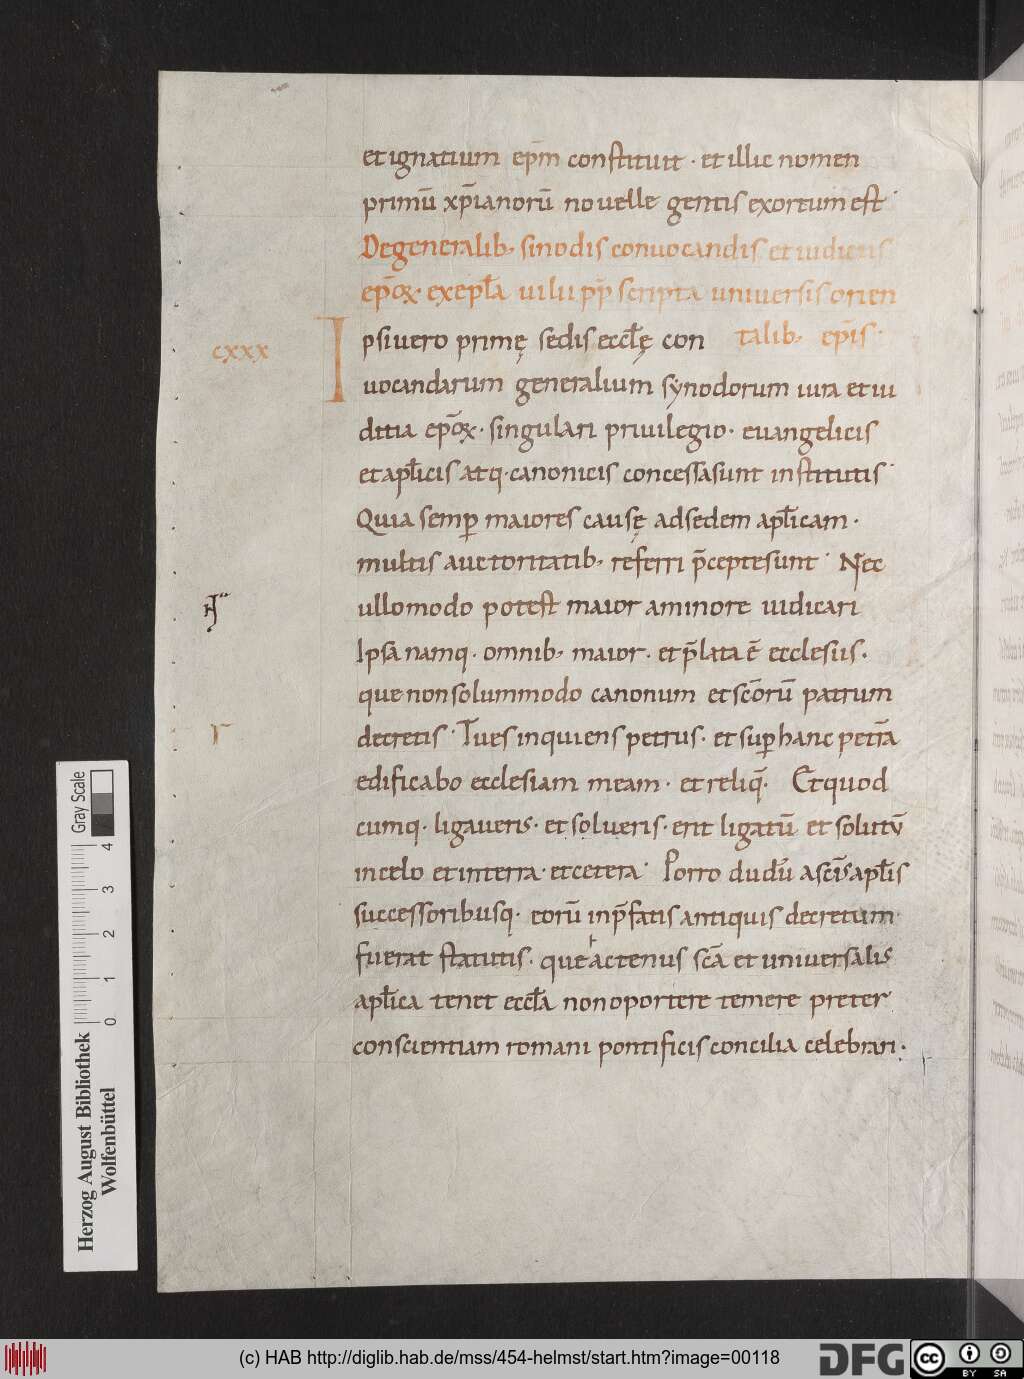 et ignatium ep̄m constituit · et illic nomen
primū xp̄ianorū nouelle gentis exortum est ·
De generalib; sinodis conuocandis et iudiciis
ep̄oꝝ · exēpl̄a uilii pp̄ scripta uniuersis orien
talib; ep̄is ·
cxxx
Ipsi uero primę sedis eccl̄ę con
uocandarum generalium synodorum iura et iu
ditia ep̄oꝝ · singulari priuilegio · euangelicis
et apl̄icis atq · canonicis concessa sunt institutis ·
Quia semꝑ maiores causę ad sedem apl̄icam ·
multis auctoritatib; referri p̄cepte sunt · Nec
ullomodo potest maior a minore iudicari
Ipsa namq · omnib; maior · et p̄lata ē ecclesiis ·
que non solummodo canonum et sc̄orū patrum
r
decretis · Tu es inquiens petrus · et suꝑ hanc petrā
edificabo ecclesiam meam · et reliq̄ · Et quod
cumq · ligaueris · et solueris · erit ligatū et solutū
in celo et in terra · et cetera · Porro dudū a sc̄is apl̄is
successoribusq · eorū in p̄fatis antiquis decretum
fuerat statutis · que actenus sc̄a et uniuersalis
apl̄ica tenet eccl̄a non oportere temere preter
conscientiam romani pontificis concilia celebrari ·
Herzog August Bibliothek
Wolfenbüttel
Gray Scale
0 1 2 3 4
(c) HAB http://diglib.hab.de/mss/454-helmst/start.htm?image=00118
DFG
cc BY SA